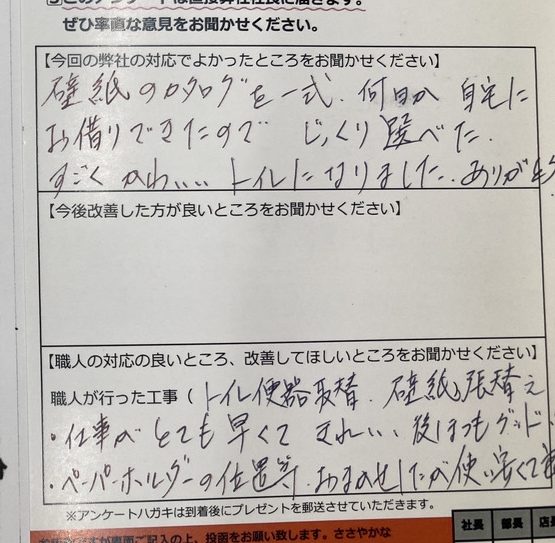 ⑤このアンケートは直接弊社社長に届きます。
ぜひ率直な意見をお聞かせください。
【今回の弊社の対応でよかったところをお聞かせください】
壁紙のカタログを一式、何日か 自宅に
お借りできたので じっくり選べた。
すごくかわいい トイレになりました。ありがとう
【今後改善した方が良いところをお聞かせください】
【職人の対応の良いところ、改善してほしいところをお聞かせください】
職人が行った工事（ トイレ便器取替、壁紙張替え
・仕事が とても 早くて きれい、後しまつもグッド、
・ペーパーホルダーの位置等、おまかせしたが使い安くて
※アンケートハガキは到着後にプレゼントを郵送させていただきます。
ご記入の上、投函をお願い致します。ささやかな
社長 部長 店長